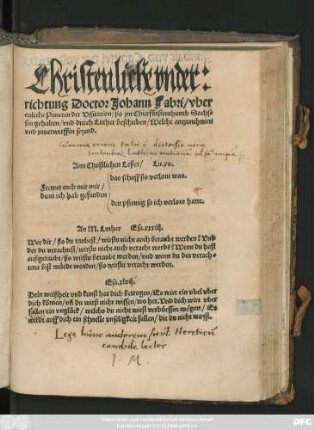 Christenliche vnder:
richtung Doctor Johann Fabri / vber
etliche Puncten der Visitation / so jm Churfürstenthumb Sachs-
sen gehalten / vnd durch Luther beschriben / Welche antzunemen
vnd zuuerwerffen seyend.
Am Christlichen Leser / Lu. xv.
Frewet euch mit mir /
dann ich hab gefunden
das schaff so verlorn was.
den pfennig so ich verlorn hatt.
An M. Luther Esa. xxxiij.
Wee dir / so du raubest / wirstu nicht auch beraubt werden? Vnd
der du verachtest / wirstu nicht auch veracht werde? Wenn du hast
außgeraubt / so wirstu beraubt werden / vnd wenn du des verach-
tens wirst veracht werden.
Esa. xlvij.
Dein weißheit vnd kunst hat dich betrogen / Es wirt ein vbel vber
dich kömen / vnd du wirst nicht wissen / wo her. Vnd dich wirt vber
fallen ein vnglück / welchs du nicht wirst versünen mögen / Es
wirdt auff dich ein schnelle vnseligkeit fallen / die du nicht weyst.
Lege hunc autorem
candide lector
J. M.
DFG